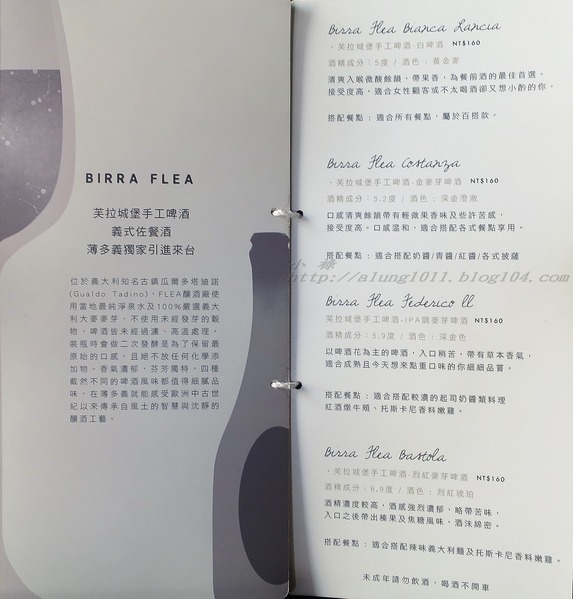 BIRRA FLEA
芙拉城堡手工啤酒
義式佐餐酒
薄多義獨家引進來台
位於義大利知名古鎮瓜爾多塔迪諾
(Gualdo Tadino)，FLEA釀酒廠使
用當地最純淨泉水及100%嚴選義大
利大麥麥芽，不使用未經發芽的穀
物，啤酒皆未經過濾、高溫處理，
裝瓶時會做二次發酵是為了保留最
原始的口感，且絕不放任何化學添
加物。香氣濃郁，芬芳獨特，四種
截然不同的啤酒風味都值得細膩品
味，在薄多義就能感受歐洲中古世
紀以來傳承自風土的智慧與沈靜的
釀酒工藝。
Birra Flea Bianca Lancia
．芙拉城堡手工啤酒-白啤酒 NT$160
酒精成分：5度 / 酒色：黃金麥
清爽入喉微酸餘韻，帶果香，為餐前酒的最佳首選。
接受度高，適合女性顧客或不太喝酒卻又想小酌的你。
搭配餐點：適合所有餐點，屬於百搭款。
Birra Flea Costanza
．芙拉城堡手工啤酒-金麥芽啤酒 NT$160
酒精成分：5.2度 / 酒色：深金澄澈
口感清爽餘韻帶有輕微果香味及些許苦感，
接受度高。口感溫和，適合搭配各式餐點享用。
搭配餐點：適合搭配奶醬/青醬/紅醬/各式披薩
小祿
http://alung1011.blog104.com
Birra Flea Federico ll
芙拉城堡手工啤酒-IPA調麥芽啤酒 NT$160
酒精成分：5.9度 / 酒色：深金色
以啤酒花為主的啤酒，入口稍苦，帶有草本香氣，
適合成熟且今天想來點重口味的你細細品嘗。
搭配餐點：適合搭配較濃的起司奶醬類料理
紅酒燉牛頰、托斯卡尼香料嫩雞。
Birra Flea Bastola
．芙拉城堡手工啤酒-烈紅麥芽啤酒 NT$160
酒精成分：6.9度 / 酒色：烈紅琥珀
酒精濃度較高，酒感強烈濃郁，略帶苦味，
入口之後帶出榛果及焦糖風味，酒沫綿密。
搭配餐點：適合搭配辣味義大利麵及托斯卡尼香料嫩雞。
未成年請勿飲酒，喝酒不開車